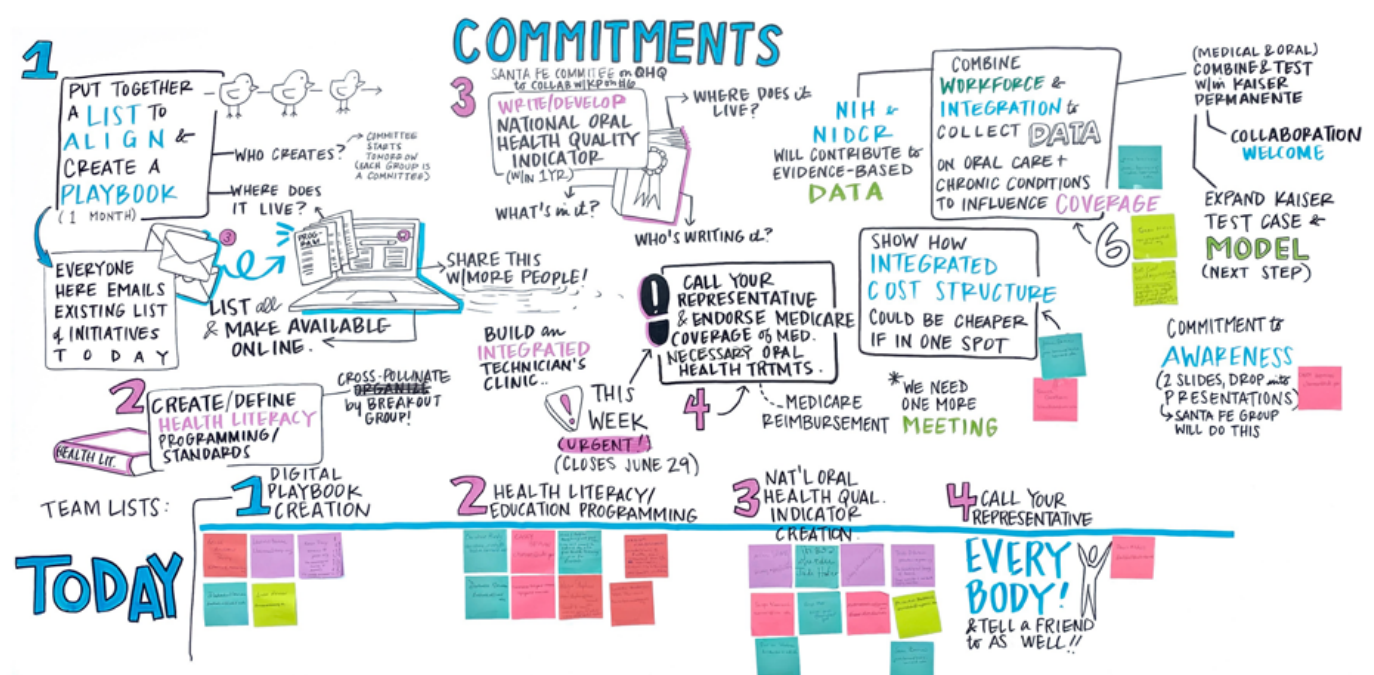 COMMITMENTS
1
PUT TOGETHER
A LIST to
ALIGN &
CREATE A
PLAYBOOK
(1 MONTH)
WHO CREATES?
COMMITTEE
STARTS
TOMORROW
(EACH GROUP IS
A COMMITTEE)
WHERE DOES
IT LIVE?
EVERYONE
HERE EMAILS
EXISTING LIST
of INITIATIVES
TODAY
3
PROG-
RAM
LIST all
& MAKE AVAILABLE
ONLINE.
SHARE THIS
W/MORE PEOPLE!
2
CREATE/DEFINE
HEALTH LITERACY
PROGRAMMING/
STANDARDS
HEALTH LIT.
CROSS-POLLINATE
ORGANIZE
by BREAKOUT
GROUP!
3
SANTA FE COMMITEE on QHQ
to COLLAB W/KP on #6
WRITE/DEVELOP
NATIONAL ORAL
HEALTH QUALITY
INDICATOR
(W/IN 1YR)
WHERE DOES it
LIVE?
WHAT'S in it?
WHO'S WRITING it?
BUILD an
INTEGRATED
TECHNICIAN'S
CLINIC..
!
CALL YOUR
REPRESENTATIVE
& ENDORSE MEDICARE
COVERAGE of MED.
NECESSARY ORAL
HEALTH TRTMTS.
4
MEDICARE
REIMBURSEMENT
!
THIS
WEEK
(URGENT!)
(CLOSES JUNE 29)
NIH &
NIDCR
WILL CONTRIBUTE to
EVIDENCE-BASED
DATA
COMBINE
WORKFORCE &
INTEGRATION to
COLLECT DATA
ON ORAL CARE +
CHRONIC CONDITIONS
TO INFLUENCE COVERAGE
6
(MEDICAL & ORAL)
COMBINE & TEST
W/in KAISER
PERMANENTE
COLLABORATION
WELCOME
EXPAND KAISER
TEST CASE &
MODEL
(NEXT STEP)
SHOW HOW
INTEGRATED
COST STRUCTURE
COULD BE CHEAPER
IF IN ONE SPOT
*WE NEED
ONE MORE
MEETING
COMMITMENT to
AWARENESS
(2 SLIDES, DROP into
PRESENTATIONS)
SANTA FE GROUP
WILL DO THIS
TEAM LISTS:
TODAY
1 DIGITAL
PLAYBOOK
CREATION
2 HEALTH LITERACY/
EDUCATION PROGRAMMING
3 NAT'L ORAL
HEALTH QUAL.
INDICATOR
CREATION.
4 CALL YOUR
REPRESENTATIVE
EVERY
BODY!
& TELL a FRIEND
to AS WELL!!